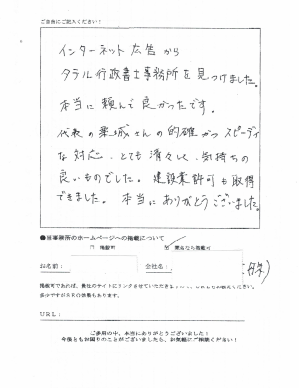 ご自由にご記入ください！
インターネット広告から
タラル行政書士事務所を見つけました。
本当に頼んで良かったです。
代表の栗城さんの的確かつスピーディ
な対応、とても清々しく、気持ちの
良いものでした。建設業許可も取得
できました。本当にありがとうございました。
●当事務所のホームページへの掲載について
掲載可 匿名なら掲載可
お名前： 会社名：
掲載可であれば、貴社のサイトにリンクさせていただきます
多少ですがSEO効果もあります。
URL：
ご多用の中、本当にありがとうございました！
今後ともお困りのことがございましたら、お気軽にご相談ください！